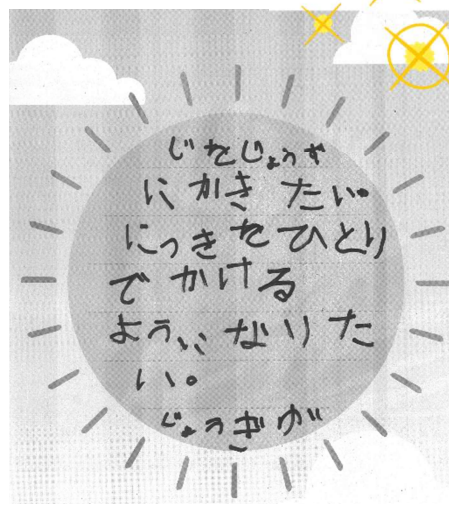 じをじょうず
にかきたい。
にっきをひとり
でかける
ようになりた
い。
じょうぎが